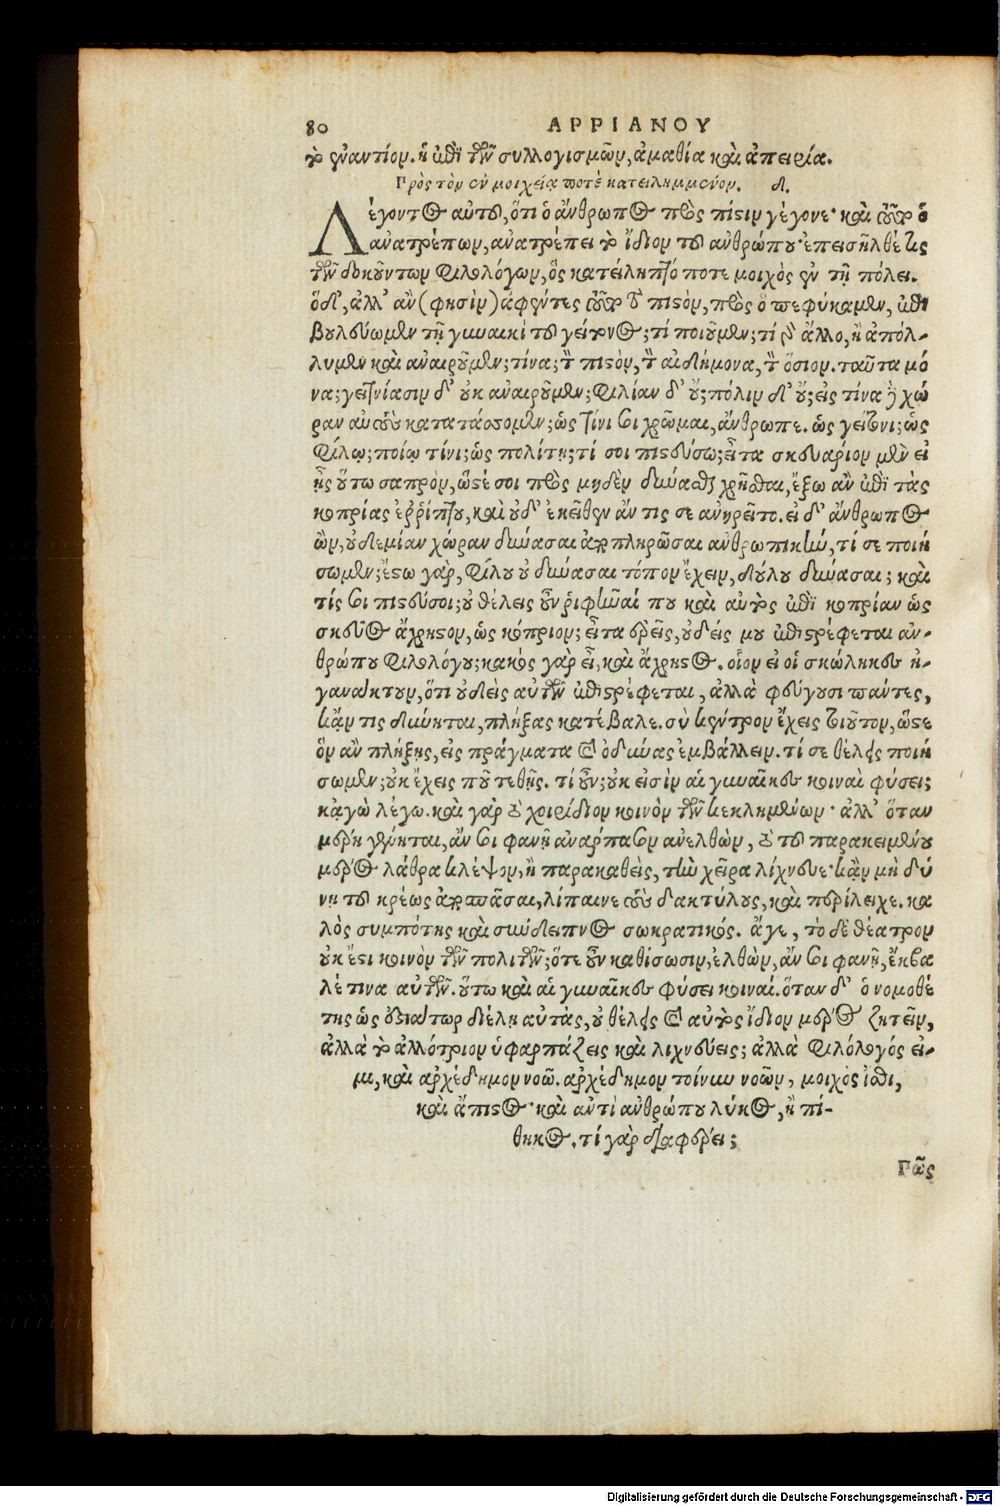 80 ΑΡΡΙΑΝΟΥ
τὸ ἐναντίον. ἡ ἐπὶ τῶν συλλογισμῶν, ἀμαθία καὶ ἀπειρία.
Πρὸς τὸν ἐν μοιχείᾳ ποτὲ κατειλημμένον. δ.
Λέγοντος αὐτοῦ, ὅτι ὁ ἄνθρωπος πρὸς πίστιν γέγονε· καὶ τοῦτο ὁ
ἀνατρέπων, ἀνατρέπει τὸ ἴδιον τοῦ ἀνθρώπου· ἐπεισῆλθέ τις
τῶν δοκούντων φιλολόγων, ὃς κατείληπτό ποτε μοιχὸς ἐν τῇ πόλει.
ὁ δ', ἀλλ' ἂν (φησὶν) ἀφέντες τοῦτο τὸ πιστὸν, πρὸς ὃ πεφύκαμεν, ἐπι
βουλεύωμεν τῇ γυναικὶ τοῦ γείτονος; τί ποιοῦμεν; τί γὰρ ἄλλο, ἢ ἀπόλ-
λυμεν καὶ ἀναιροῦμεν; τίνα; τὸν πιστὸν, τὸν αἰδήμονα, τὸν ὅσιον. ταῦτα μό
να; γειτνίασιν δ' οὐκ ἀναιροῦμεν; φιλίαν δ' οὔ; πόλιν δ' οὔ; εἰς τίνα δὲ χώ
ραν αὑτοὺς κατατάσσομεν; ὡς τίνι σοι χρῶμαι, ἄνθρωπε. ὡς γείτονι; ὡς
φίλῳ; ποίῳ τίνι; ὡς πολίτῃ; τί σοι πιστεύσω; εἶτα σκευάριον μὲν εἰ
ἦς οὕτω σαπρὸν, ὥστέ σοι πρὸς μηδὲν δύνασθαι χρῆσθαι, ἔξω ἂν ἐπὶ τὰς
κοπρίας ἐῤῥίπτου, καὶ οὐδ' ἐκεῖθεν ἄν τις σε ἀνῃρεῖτο. εἰ δ' ἄνθρωπος
ὢν, οὐδεμίαν χώραν δύνασαι ἀποπληρῶσαι ἀνθρωπικὴν, τί σε ποιή
σωμεν; ἔστω γὰρ, φίλου οὐ δύνασαι τόπον ἔχειν, δούλου δύνασαι; καὶ
τίς σοι πιστεύσοι; οὐ θέλεις οὖν ῥιφῆναί που καὶ αὐτὸς ἐπὶ κοπρίαν ὡς
σκεῦος ἄχρηστον, ὡς κόπριον; εἶτα ἐρεῖς, οὐδείς μου ἐπιστρέφεται ἀν-
θρώπου φιλολόγου; κακὸς γὰρ εἶ, καὶ ἄχρηστος. οἷον εἰ οἱ σκώληκες ἠ-
γανάκτουν, ὅτι οὐδεὶς αὐτῶν ἐπιστρέφεται, ἀλλὰ φεύγουσι πάντες,
κἄν τις δύνηται, πλήξας κατέβαλε. σὺ κέντρον ἔχεις τοιοῦτον, ὥστε
ὃν ἂν πλήξῃς, εἰς πράγματα καὶ ὀδύνας ἐμβάλλειν. τί σε θέλεις ποιή
σωμεν; οὐκ ἔχεις ποῦ τεθῇς. τί οὖν; οὐκ εἰσὶν αἱ γυναῖκες κοιναὶ φύσει;
κᾀγὼ λέγω. καὶ γὰρ τὸ χοιρίδιον κοινὸν τῶν κεκλημένων· ἀλλ' ὅταν
μέρη γένηται, ἄν σοι φανῇ ἀνάρπασον ἀνελθὼν, τὸ τοῦ παρακειμένου
μέρος λάθρα κλέψον, ἢ παρακαθεὶς, τὴν χεῖρα λίχνευε· κᾂν μὴ δύ
νῃ τοῦ κρέως ἀποσπᾶσαι, λίπαινε τοὺς δακτύλους, καὶ περίλειχε. κα
λὸς συμπότης καὶ σύνδειπνος σωκρατικός. ἄγε, τὸ δὲ θέατρον
οὐκ ἔστι κοινὸν τῶν πολιτῶν; ὅτε οὖν καθίσωσιν, ἐλθὼν, ἄν σοι φανῇ, ἔκβα
λέ τινα αὐτῶν. οὕτω καὶ αἱ γυναῖκες φύσει κοιναί. ὅταν δ' ὁ νομοθέ
της ὡς ἑστιάτωρ διέλῃ αὐτὰς, οὐ θέλεις καὶ αὐτὸς ἴδιον μέρος ζητεῖν,
ἀλλὰ τὸ ἀλλότριον ὑφαρπάζεις καὶ λιχνεύεις; ἀλλὰ φιλόλογός εἰ-
μι, καὶ ἀρχέδημον νοῶ. ἀρχέδημον τοίνυν νοῶν, μοιχὸς ἴσθι,
καὶ ἄπιστος· καὶ ἀντὶ ἀνθρώπου λύκος, ἢ πί-
θηκος. τί γὰρ διαφέρει;
Πῶς
Digitalisierung gefördert durch die Deutsche Forschungsgemeinschaft - DFG